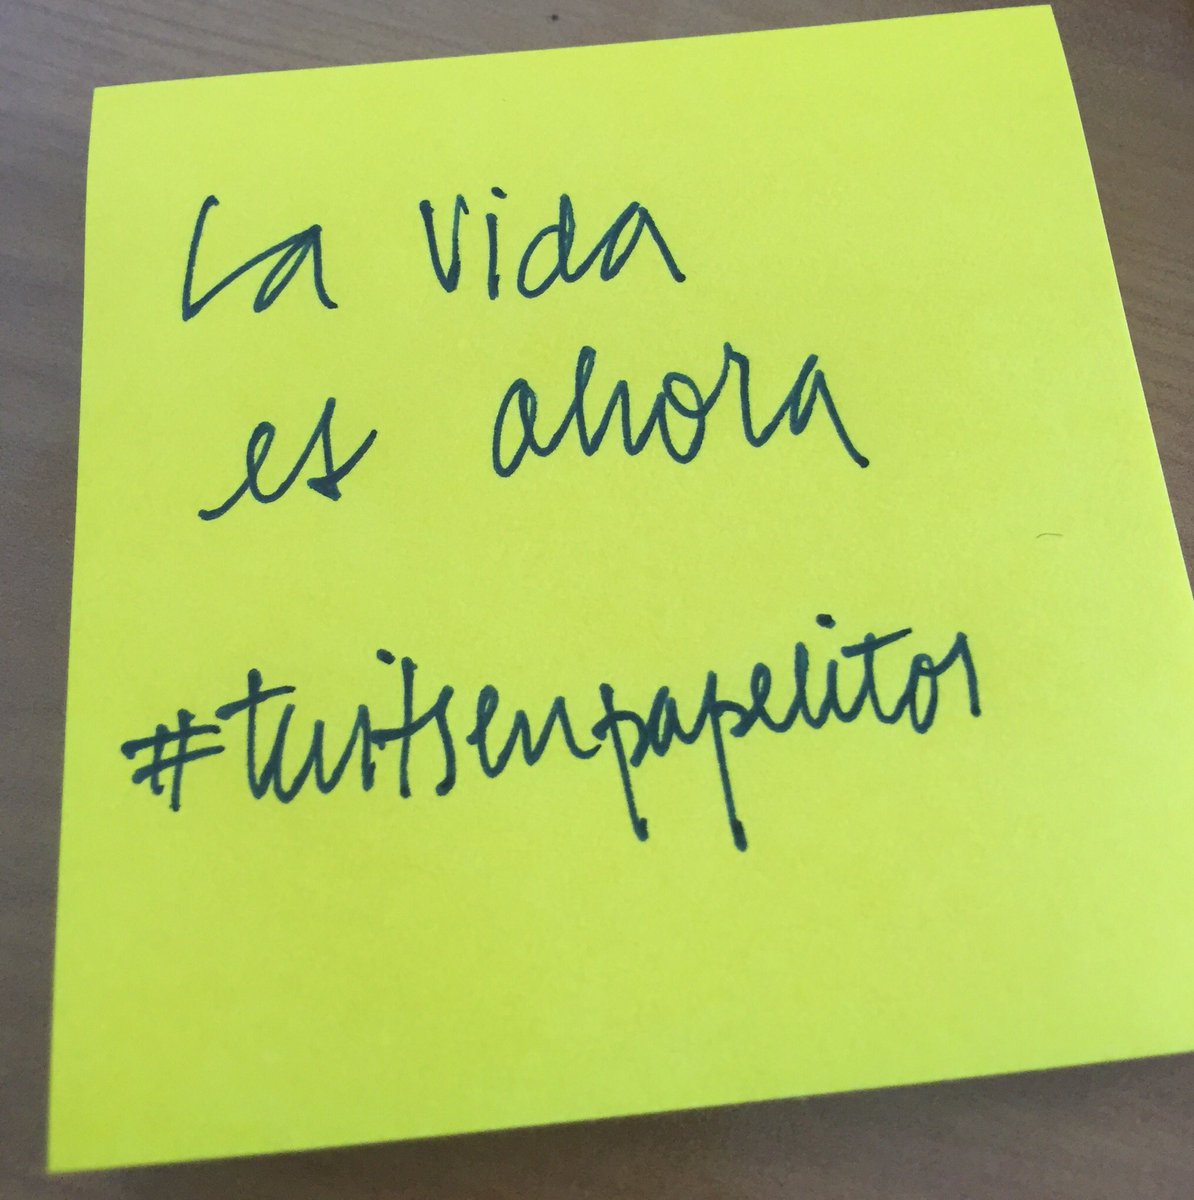 La vida
es ahora
#tuitsenpapelitos